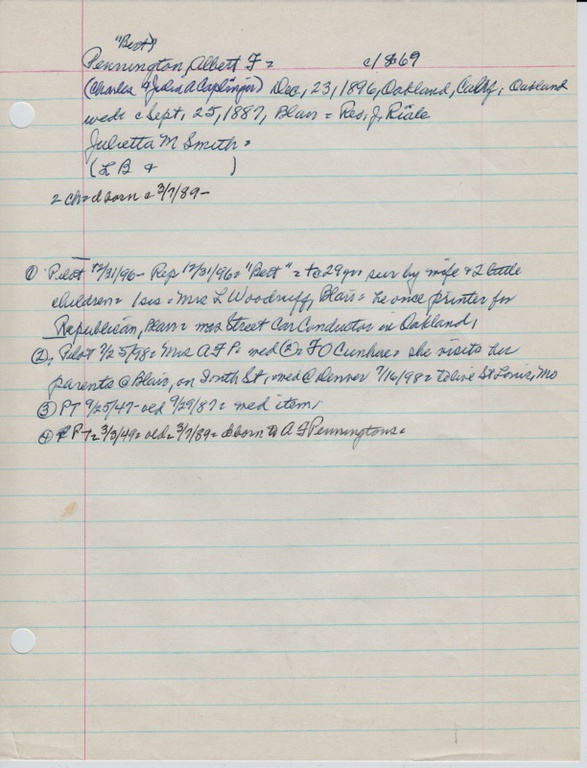 "Bert"
Pennington, Albert F = c/1869
(Charles & Julia A Caplinger) Dec, 23, 1896, Oakland, Calif, Oakland
wed = Sept, 25, 1887, Blair = Res, J, Riale
Julietta M Smith =
(L B & )
2 ch = d born c 3/7/89 -
① Pilot 12/31/96 - Rep 12/31/96 = "Bert" = to 29 yrs surv by wife & 2 little
children = 1 sis = Mrs L Woodruff, Blair = he once printer for
Republican, Blair = was Street Car Conductor in Oakland,
②, Pilot 9/25/98 = Mrs A F P = wed ② = F O = she visits her
parents @ Blair, on South St, wed @ Denver 7/16/98 = to live St Louis, Mo
③ PT 9/25/47 - old 9/29/87 = wed item,
④ PT = 3/3/49 = old = 3/7/89 = d born to A F Penningtons =